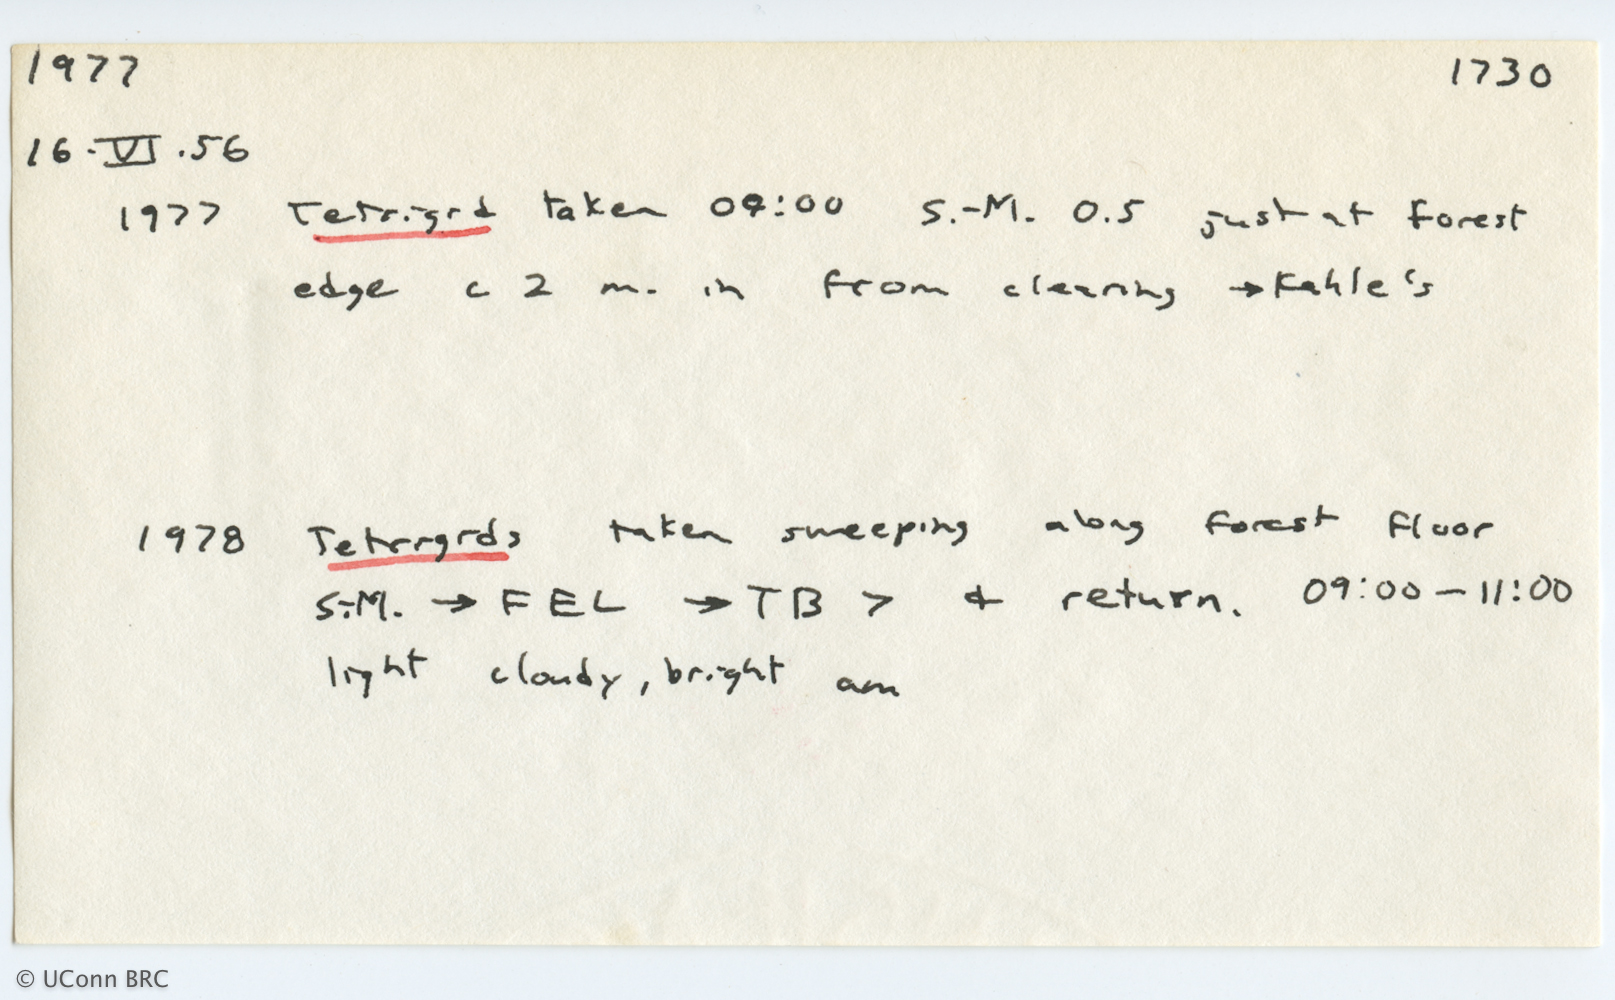 1977 1730
16.VI.56
1977 Tetrigid taken 09:00 S.-M. 0.5 just at forest
edge c 2 m. in from clearing → Kahle's
1978 Tetrigids taken sweeping along forest floor
S.-M. → FEL → TB > & return. 09:00 – 11:00
light cloudy, bright am
© UConn BRC